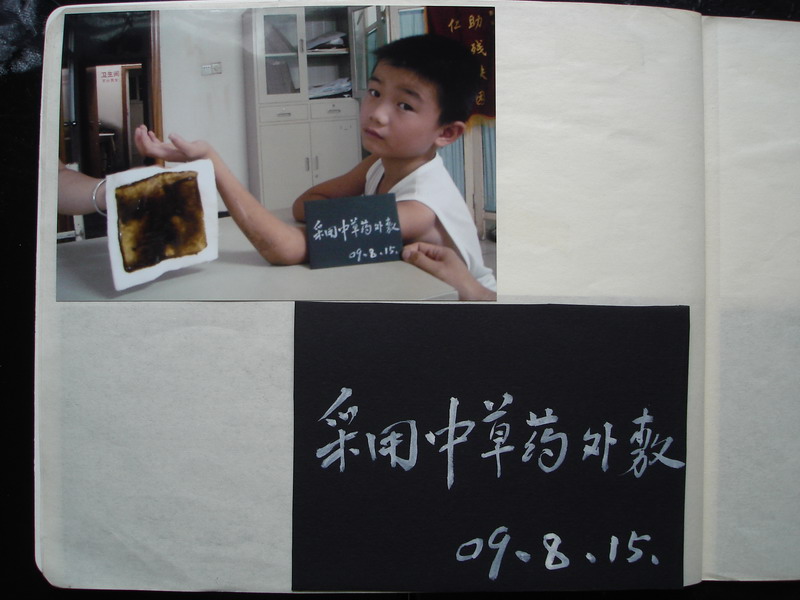 卫生间
仁 助
残
采用中草药外敷
09.8.15.
采用中草药外敷
09.8.15.